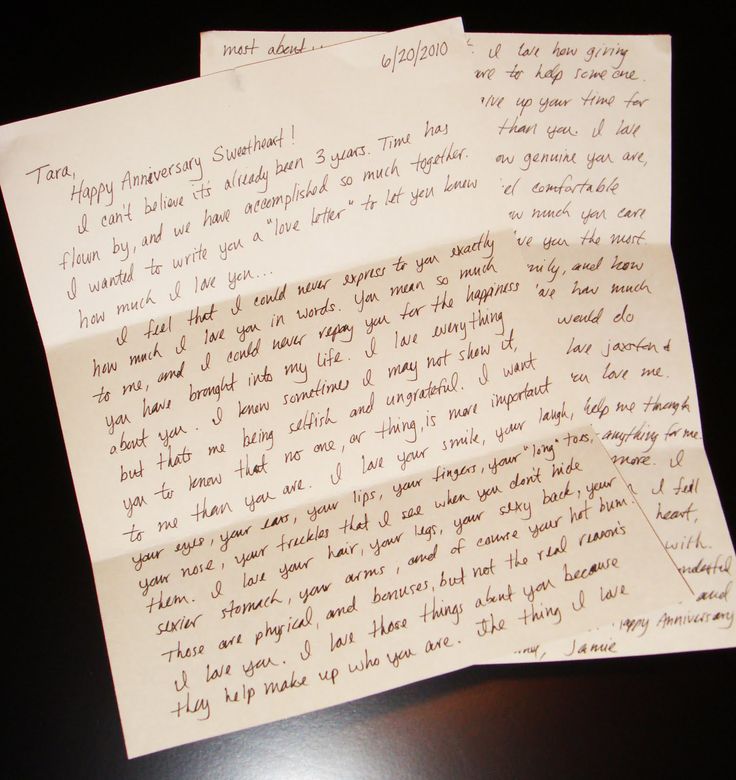 6/20/2010
Tara,
Happy Anniversary Sweetheart!
I can't believe it's already been 3 years. Time has
flown by, and we have accomplished so much together.
I wanted to write you a "love letter" to let you know
how much I love you...
I feel that I could never express to you exactly
how much I love you in words. You mean so much
to me, and I could never repay you for the happiness
you have brought into my life. I love everything
about you. I know sometimes I may not show it,
but thats me being selfish and ungrateful. I want
you to know that no one, or thing, is more important
to me than you are. I love your smile, your laugh,
your eyes, your ears, your lips, your fingers, your "long" toes,
your nose, your freckles that I see when you don't hide
them. I love your hair, your legs, your sexy back, your
sexier stomach, your arms, and of course your hot bum.
Those are physical, and bonuses, but not the real reason's
I love you. I love those things about you because
they help make up who you are. The thing I love
most about
I love how giving
to help someone.
up your time for
than you. I love
genuine you are,
comfortable
much you care
you the most.
and how
how much
would do
love jaxston &
love me.
help me through
anything for me.
more. I
I feel
heart,
with.
and
Happy Anniversary
Jamie